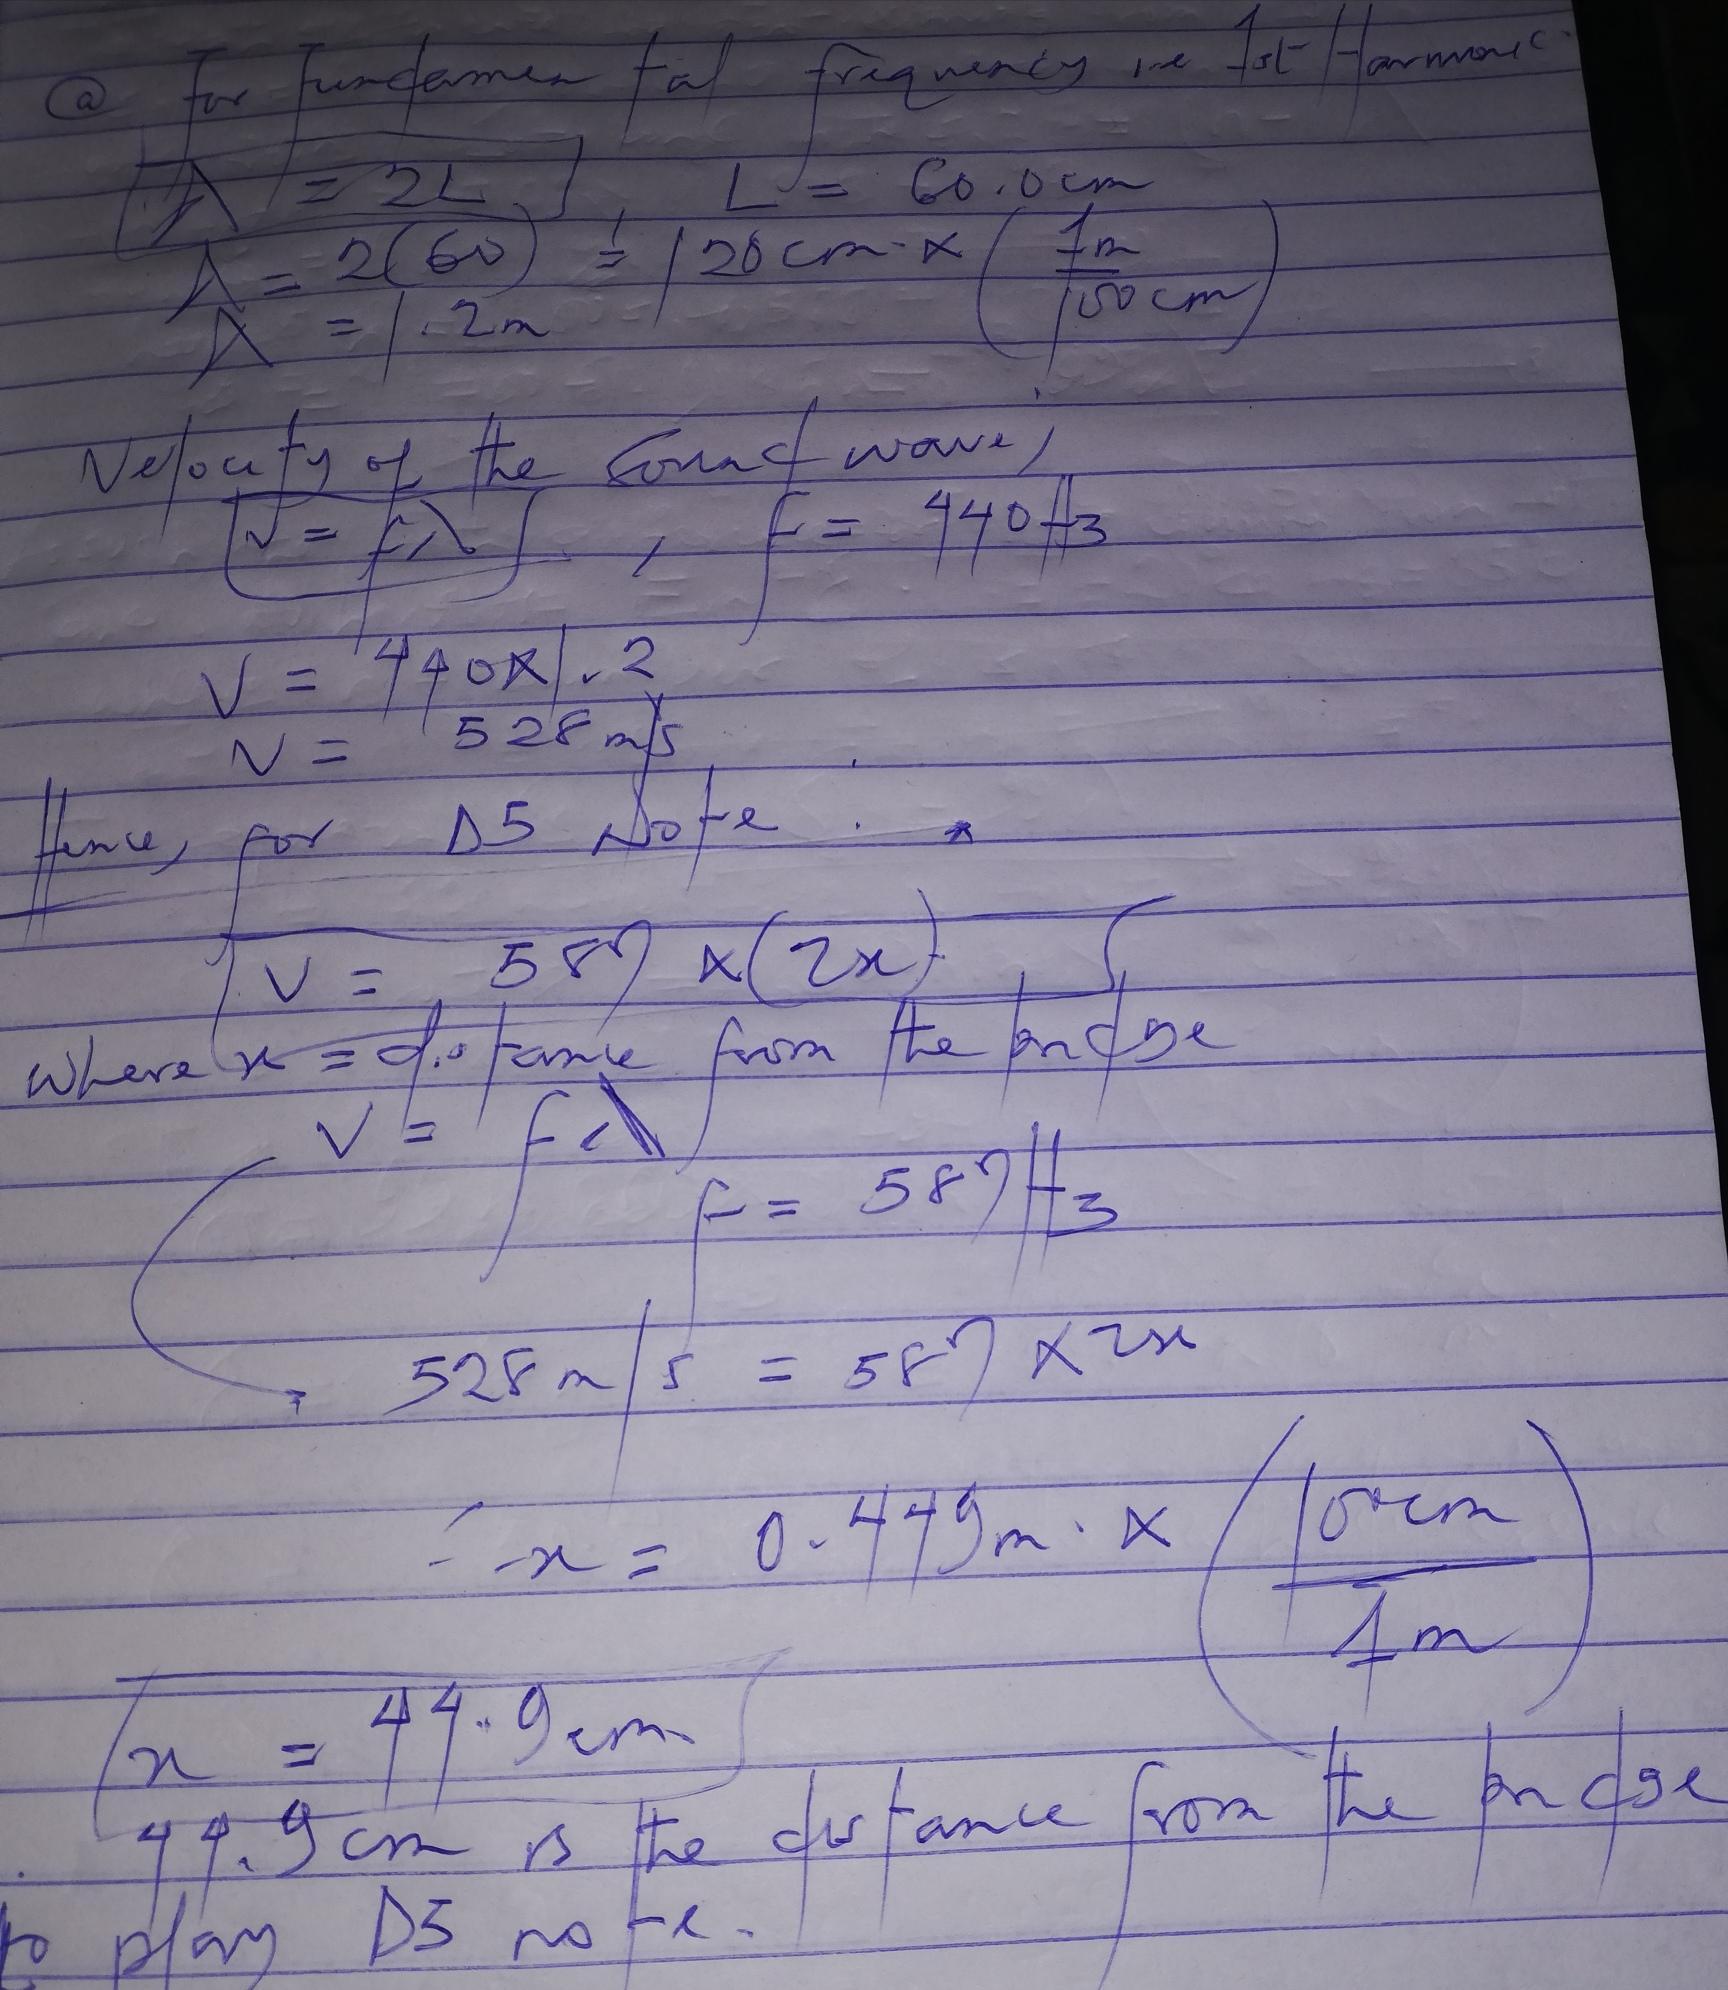 @ for fundamental frequency i.e 1st Harmonic.
λ = 2L, L = 60.0cm
λ = 2(60) = 120cm x (1m/100cm)
λ = 1.2m
Velocity of the sound wave,
v = fλ, f = 440Hz
V = 440x1.2
V = 528m/s
Hence, for D5 Note.
V = 587 x(2x)
where x = distance from the bridge
V = fλ
f = 587Hz
528m/s = 587 x 2x
∴ x = 0.449m x (100cm/1m)
x = 44.9cm
∴ 44.9cm is the distance from the bridge
to play D5 note.